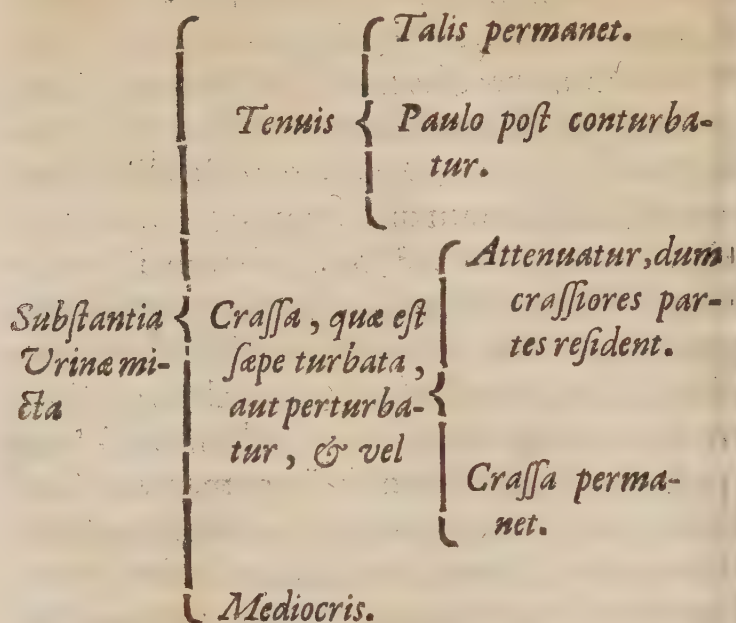 Substantia
Urinæ mi-
cta
Tenuis
Talis permanet.
Paulo poſt conturba-
tur.
Craſſa, quæ eſt
ſæpe turbata,
aut perturba-
tur, & vel
Attenuatur, dum
craſſiores par-
tes reſident.
Craſſa perma-
net.
Mediocris.